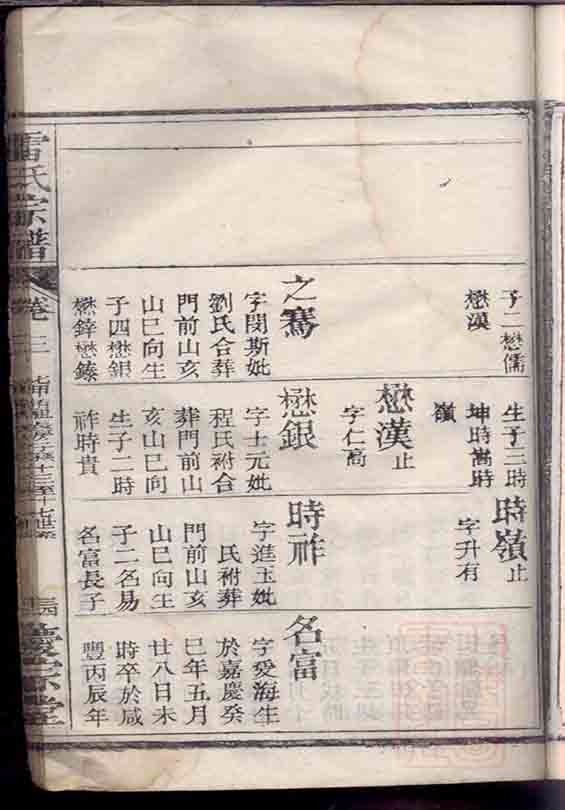 子二懋儒
懋漢
之騫
字閔斯妣
劉氏合葬
門前山亥
山巳向生
子四懋銀
懋鋅懋
生子三時
坤時嵩時
嶺
懋漢止
字仁高
懋銀
字士元妣
程氏祔合
葬門前山
亥山巳向
生子二時
祚時貴
時嶺止
字升有
時祚
字進玉妣
氏祔葬
門前山亥
山巳向生
子二名易
名富長子
名富
字愛海生
於嘉慶癸
巳年五月
廿八日未
時卒於咸
豐丙辰年
雷氏宗譜
卷三